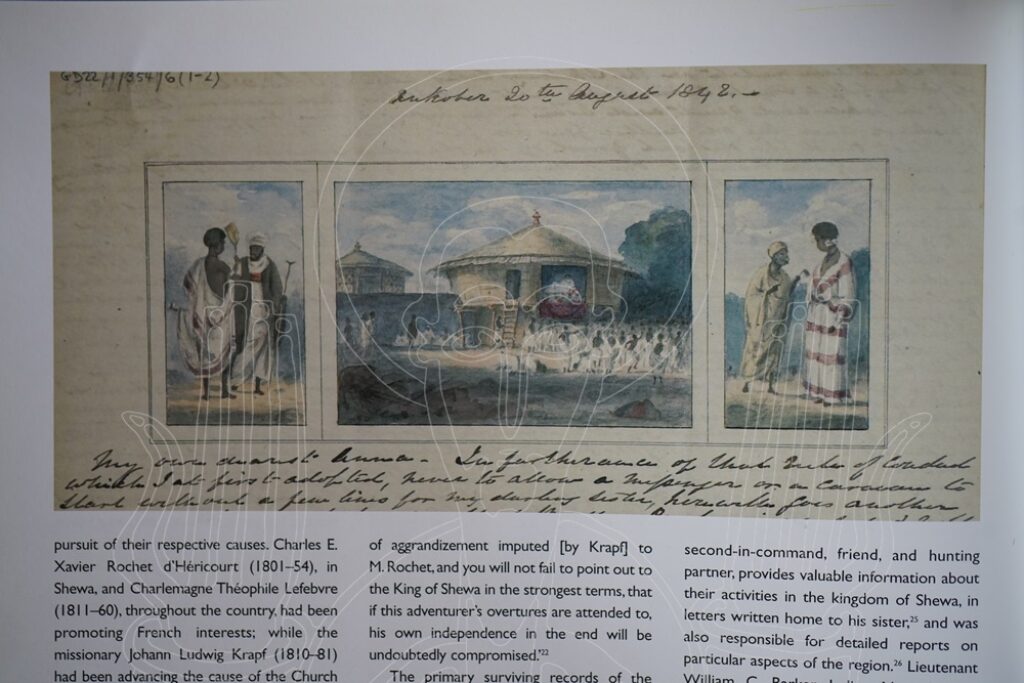 GD22/1/354/6(1-2)
Ankober 20th August 1842.-
My own dearest Anna - In furtherance of that rule of conduct
which I at first adopted, never to allow a messenger or a caravan to
start without a few lines for my darling sister, herewith goes another
pursuit of their respective causes. Charles E.
Xavier Rochet d'Héricourt (1801–54), in
Shewa, and Charlemagne Théophile Lefebvre
(1811–60), throughout the country, had been
promoting French interests; while the
missionary Johann Ludwig Krapf (1810–81)
had been advancing the cause of the Church
of aggrandizement imputed [by Krapf] to
M. Rochet, and you will not fail to point out to
the King of Shewa in the strongest terms, that
if this adventurer's overtures are attended to,
his own independence in the end will be
undoubtedly compromised.'22
The primary surviving records of the
second-in-command, friend, and hunting
partner, provides valuable information about
their activities in the kingdom of Shewa, in
letters written home to his sister,25 and was
also responsible for detailed reports on
particular aspects of the region.26 Lieutenant
William C. Barker